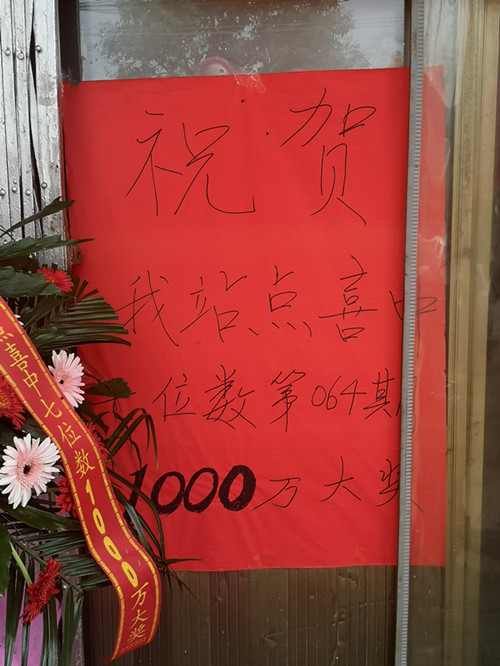 祝贺
我站点喜中
位数第064期
1000万大奖
点喜中七位数1000万大奖